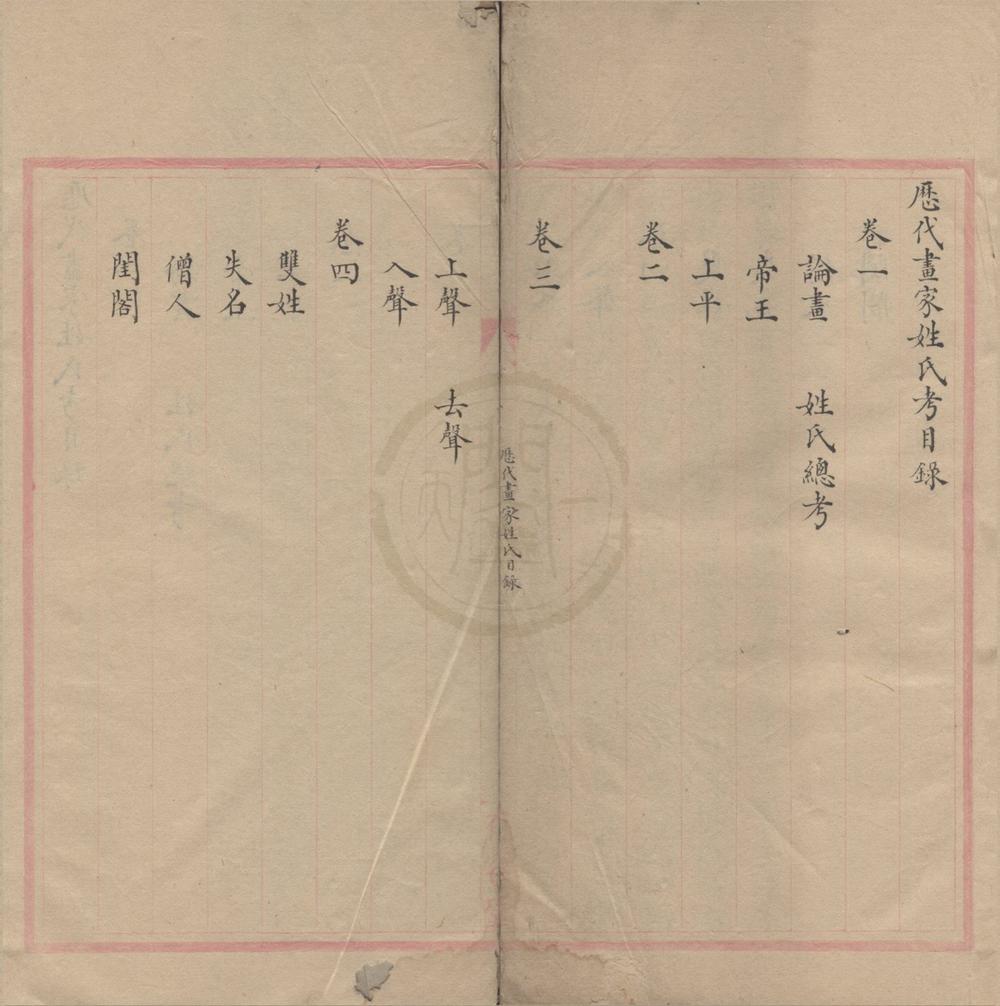 歷代畫家姓氏考目錄
卷一
論畫 姓氏總考
帝王
上平
卷二
卷三
歷代畫家姓氏目錄
上聲 去聲
入聲
卷四
雙姓
失名
僧人
閨閣